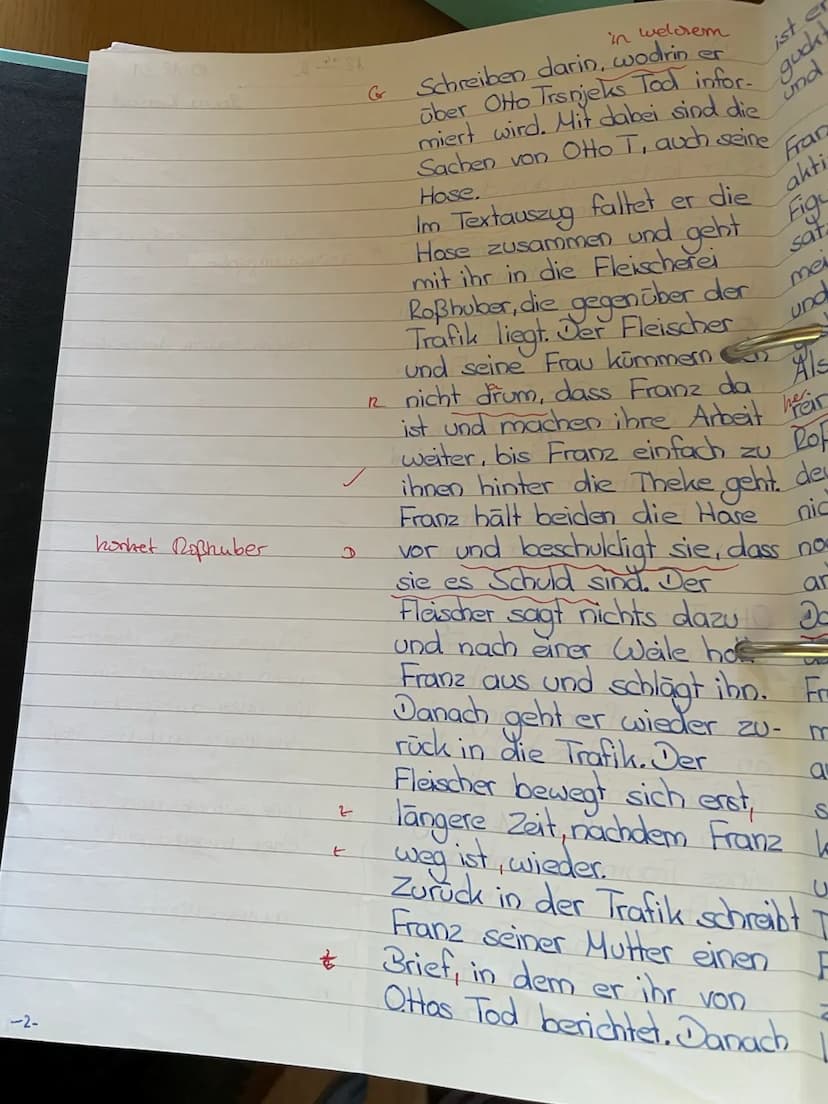 in welchem
G Schreiben darin, wodrin er
über Otto Trsnjeks Tod infor-
miert wird. Mit dabei sind die
Sachen von Otto T, auch seine
Hose.
Im Textauszug faltet er die
Hose zusammen und geht
mit ihr in die Fleischerei
Roßhuber, die gegenüber der
Trafik liegt. Der Fleischer
und seine Frau kümmern
R nicht drum, dass Franz da
ist und machen ihre Arbeit
weiter, bis Franz einfach zu
✓ ihnen hinter die Theke geht.
Franz hält beiden die Hose
Roßhuber vor und beschuldigt sie, dass
sie es Schuld sind. Der
Fleischer sagt nichts dazu
und nach einer Weile
Franz aus und schlägt ihn.
Danach geht er wieder zu-
rück in die Trafik. Der
Fleischer bewegt sich erst,
längere Zeit, nachdem Franz
weg ist, wieder.
Zurück in der Trafik schreibt
Franz seiner Mutter einen
Brief, in dem er ihr von
Ottos Tod berichtet. Danach
-2-
ist er
guckt
und
Fran
akti
Figu
sät
mei
und
Als
her
rein
Roß
de
nic
no
an
Do
Fr